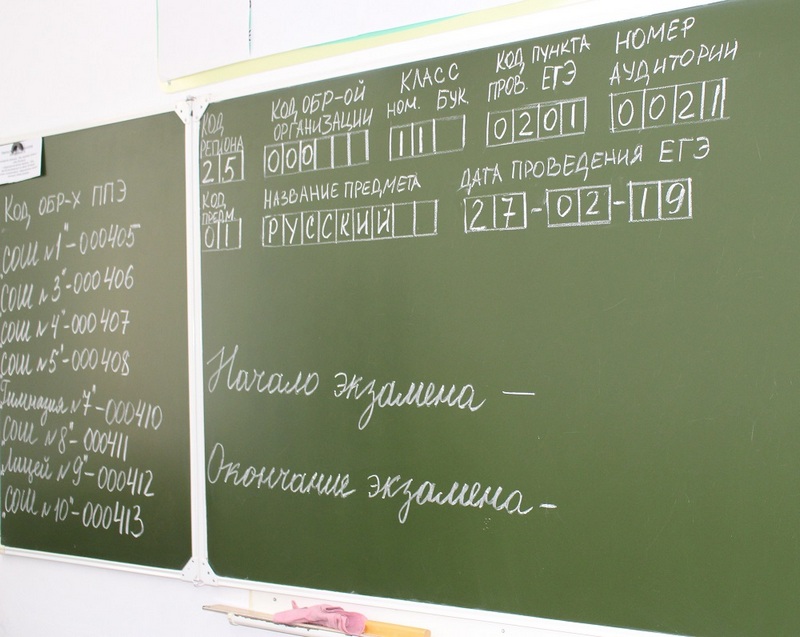 Код ОБР-Х ППЭ
"СОШ №1"-000405
"СОШ №3"-000406
"СОШ №4"-000407
"СОШ №5"-000408
"Гимназия №7"-000410
"СОШ №8"-000411
"Лицей №9"-000412
"СОШ №10"-000413
КОД РЕГИОНА
25
КОД ОБР-ОЙ ОРГАНИЗАЦИИ
000
КЛАСС
НОМ. БУК.
11
КОД ПУНКТА
ПРОВ. ЕГЭ
0201
НОМЕР
АУДИТОРИИ
0021
КОД
ПРЕДМ.
01
НАЗВАНИЕ ПРЕДМЕТА
РУССКИЙ
ДАТА ПРОВЕДЕНИЯ ЕГЭ
27-02-19
Начало экзамена —
Окончание экзамена-